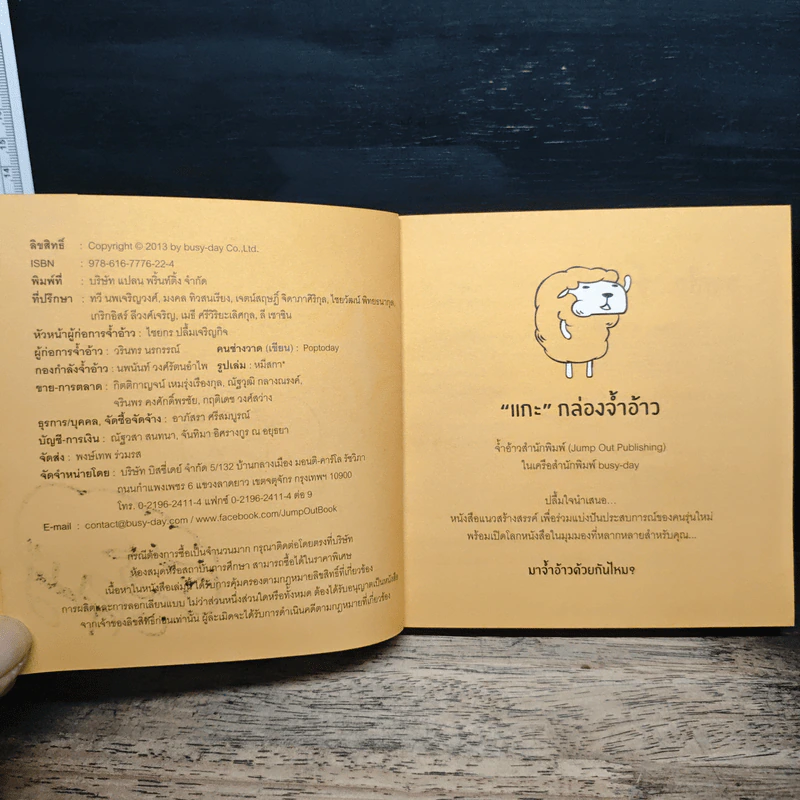 ลิขสิทธิ์ : Copyright © 2013 by busy-day Co.,Ltd.
ISBN : 978-616-7776-22-4
พิมพ์ที่ : บริษัท แปลน พริ้นท์ติ้ง จำกัด
ที่ปรึกษา : ทวี นพเจริญวงศ์, มงคล ทิวสนเรียง, เจตน์สฤษฎิ์ จิดาภาศิริกุล, ไชยวัฒน์ พิทยธนากุล,
เกริกอิสร์ ลีวงศ์เจริญ, เมธี ศรีวิริยะเลิศกุล, ลี เชาชิน
หัวหน้าผู้ก่อการจ้ำอ้าว : ไชยกร ปลื้มเจริญกิจ
ผู้ก่อการจ้ำอ้าว : วรินทร นรกรรณ์ คนช่างวาด (เขียน) : Poptoday
กองกำลังจ้ำอ้าว : นพนันท์ วงศ์รัตนอำไพ รูปเล่ม : หมีสกา*
ขาย-การตลาด : กิตติกาญจน์ เหมรุ่งเรืองกุล, ณัฐวุฒิ กลางณรงค์,
จรินพร คงศักดิ์พรชัย, กฤติเดช วงศ์สว่าง
ธุรการ/บุคคล, จัดซื้อจัดจ้าง : อาภัสรา ศรีสมบูรณ์
บัญชี-การเงิน : ณัฐวสา สนทนา, จันทิมา อิศรางกูร ณ อยุธยา
จัดส่ง : พงษ์เทพ ร่วมรส
จัดจำหน่ายโดย : บริษัท บิสซี่เดย์ จำกัด 5/132 บ้านกลางเมือง มอนติ-คาร์โล รัชวิภา
ถนนกำแพงเพชร 6 แขวงลาดยาว เขตจตุจักร กรุงเทพฯ 10900
โทร. 0-2196-2411-4 แฟกซ์ 0-2196-2411-4 ต่อ 9
E-mail : contact@busy-day.com / www.facebook.com/JumpOutBook
กรณีต้องการซื้อเป็นจำนวนมาก กรุณาติดต่อโดยตรงที่บริษัท
ห้องสมุดหรือสถาบันการศึกษา สามารถซื้อได้ในราคาพิเศษ
เนื้อหาในหนังสือเล่มนี้ ได้รับการคุ้มครองตามกฎหมายลิขสิทธิ์ที่เกี่ยวข้อง
การผลิตและการลอกเลียนแบบ ไม่ว่าส่วนหนึ่งส่วนใดหรือทั้งหมด ต้องได้รับอนุญาตเป็นหนังสือ
จากเจ้าของลิขสิทธิ์ก่อนเท่านั้น ผู้ละเมิดจะได้รับการดำเนินคดีตามกฎหมายที่เกี่ยวข้อง
“แกะ” กล่องจ้ำอ้าว
จ้ำอ้าวสำนักพิมพ์ (Jump Out Publishing)
ในเครือสำนักพิมพ์ busy-day
ปลื้มใจนำเสนอ...
หนังสือแนวสร้างสรรค์ เพื่อร่วมแบ่งปันประสบการณ์ของคนรุ่นใหม่
พร้อมเปิดโลกหนังสือในมุมมองที่หลากหลายสำหรับคุณ...
มาจ้ำอ้าวด้วยกันไหม?
14
15